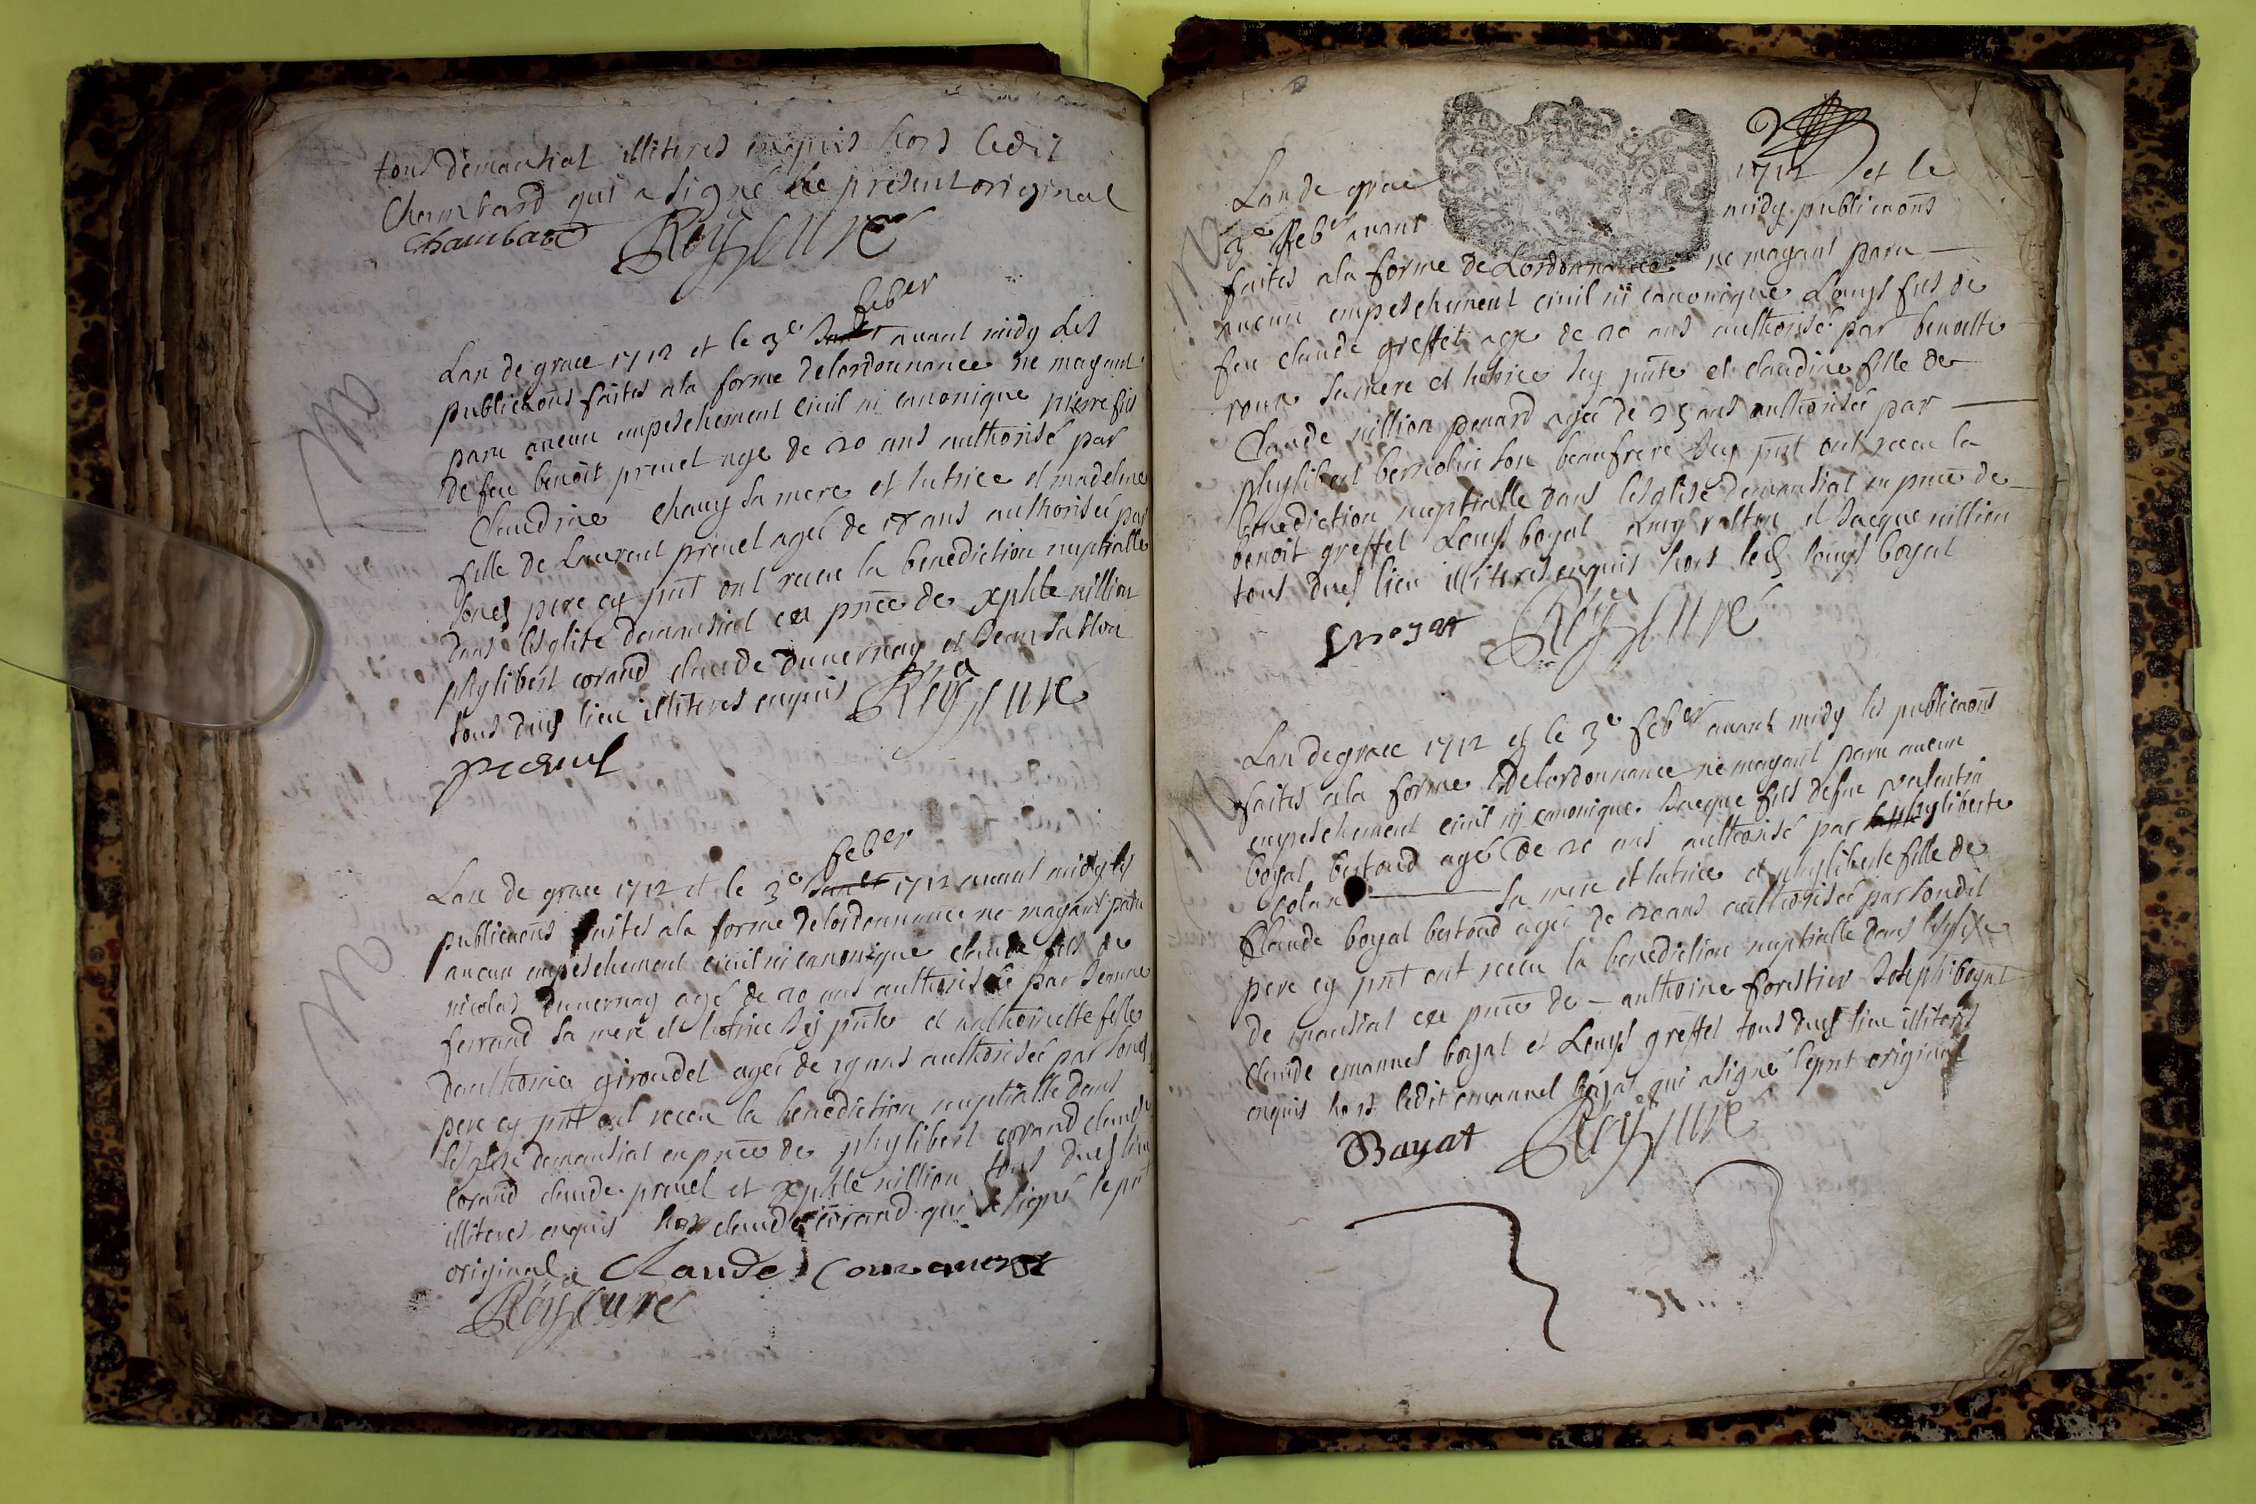 tous demarsiat illiteres enquis hors ledit
Chambard qui a signé le present original
Chambard Roy curé
M
feber
Lan de grace 1712 et le 3e avant midy les
publicaons faites ala forme delordonnance ne mayant
paru aucun empeschement civil ni canonique pierre fils
de feu benoit preuel age de 20 ans authorisé par
Claudine chauy sa mere et tutrice et madeleine
fille de Laurent preuel ageé de 18 ans authorisée par
sond pere cy pnt ont receu la benediction nuptialle
dans lesglise demarsiat en pnce de million
phylibert corand claude duuernay et
tous dud lieu illiteres enquis Roy curé
preuel
M
feber
Lan de grace 1712 et le 3e 1712 avant midy les
publicaons faites ala forme delordonnance ne mayant paru
aucun empeschement civil ni canonique claude fils de
nicolas duuernay agé de 20 ans authorisé par Jeanne
ferrand sa mere et tutrice pnte et anthoinette fille
danthoine girondet ageé de 19 ans authorisée par sond
pere cy pnt ont receu la benediction nuptialle dans
lesglise demarsiat en pnce de phylibert corand claude
corand claude preuel et million tous dud lieu
illiteres enquis hors claude corand qui a signé le pnt
original Claude
Roy curé
M
Lan de grace 1712 et le
3e feber avant midy publicaons
faites ala forme de Lordonnance ne mayant paru
aucun empeschement civil ni canonique Louys fils de
feu claude greffet age de 20 ans authorisé par benoitte
roux sa mere et tutrice pnte et claudine fille de
Claude million penard ageé de 25 ans authorisée par
phylibert son beaufrere pnt ont receu la
benediction nuptialle dans lesglise demarsiat en pnce de
benoit greffet Louys boyat et Jacque million
tous dud lieu illiteres enquis hors led louys boyat
Roy curé
M
Lan de grace 1712 et le 3e feber avant midy les publicaons
faites ala forme delordonnance ne mayant paru aucun
empeschement civil nj canonique Jacque fils defue valentin
boyat bertoud agé de 20 ans authorisé par phyliberte
sa mere et tutrice et phyliberte fille de
Claude boyat bertoud ageé de 20 ans authorisée par sondit
pere cy pnt ont receu la benediction nuptialle dans lesglise
de marsiat en pnce de anthoine forestier Joseph boyat
claude emanuel boyat et Louys greffet tous dud lieu illiteres
enquis hors ledit emanuel boyat qui a signé le pnt original
Bayat Roy curé